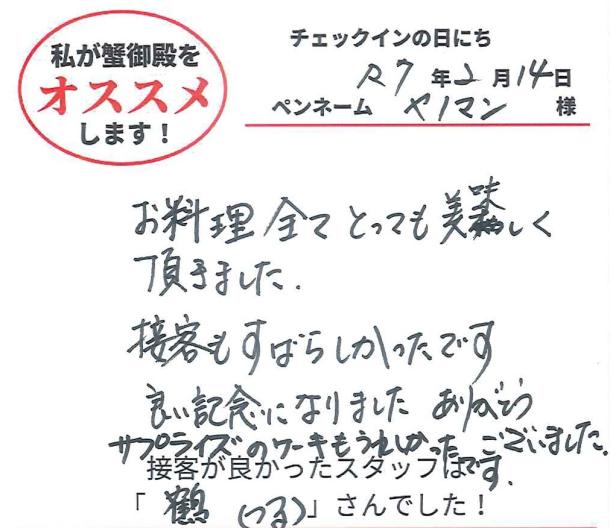 私が蟹御殿を
オススメ
します！
チェックインの日にち
R7年2月14日
ペンネーム ヤノマン 様
お料理全てとっても美味しく
頂きました.
接客もすばらしかったです
良い記念になりました ありがとう
ございました.
サプライズのケーキもうれしかったです.
接客が良かったスタッフは
「鶴(つる)」さんでした！